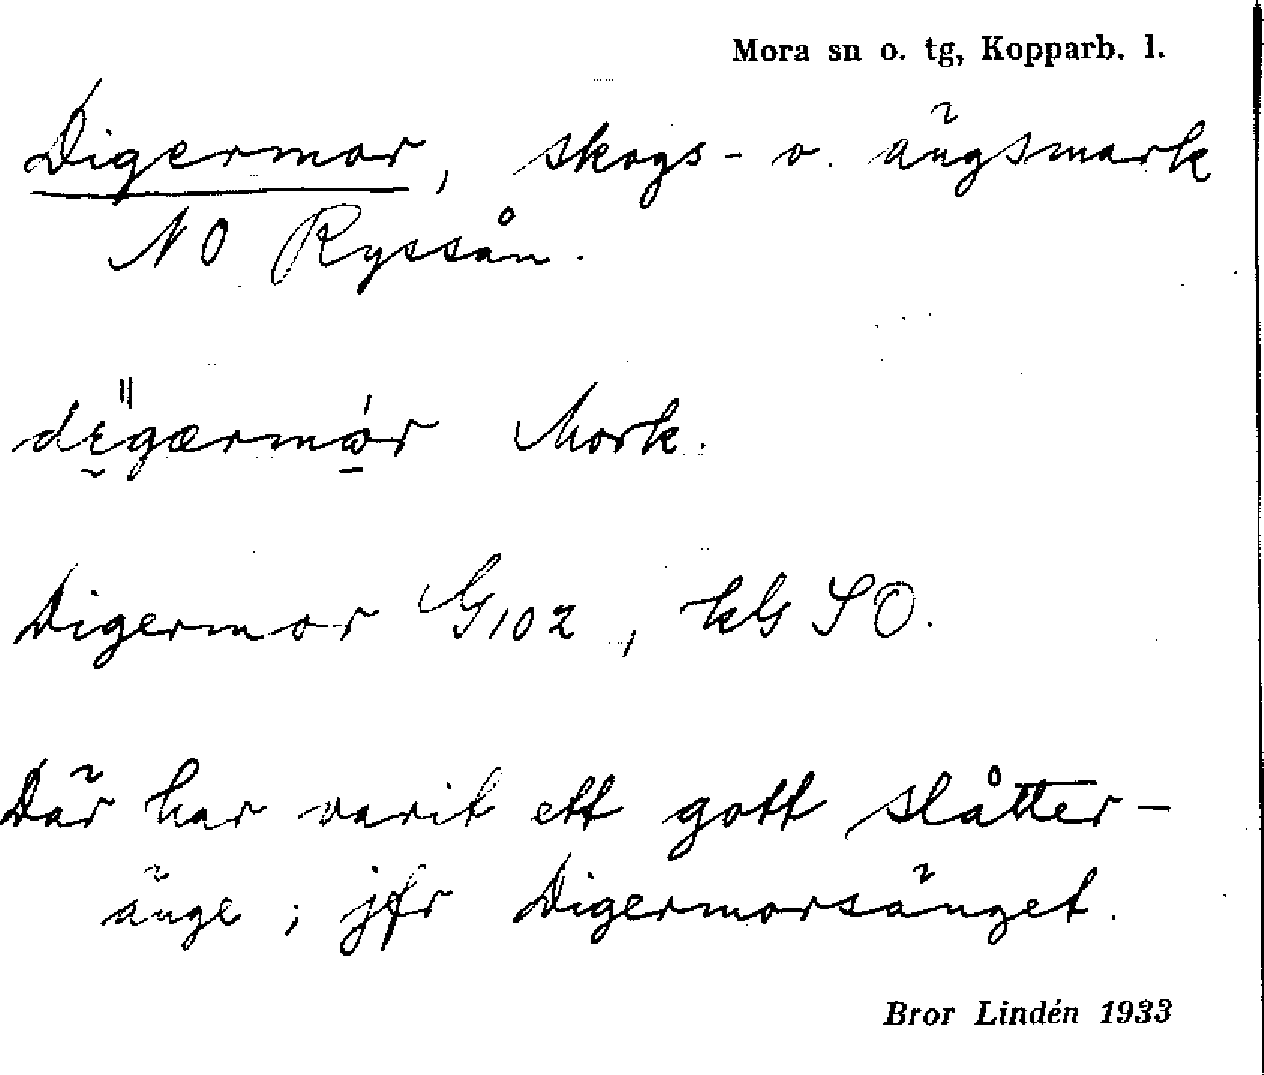 Mora sn o. tg, Kopparb. l.
Digermor, skogs- o. ängsmark
NO Ryssån.
Mork.
Digermor G102, kG SO.
Där har varit ett gott slåtter-
änge; jfr Digermorsänget.
Bror Lindén 1933